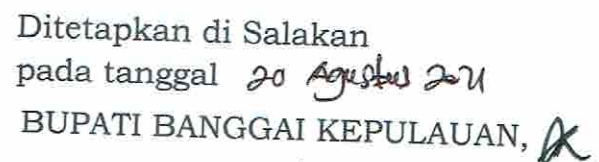 Ditetapkan di Salakan
pada tanggal 20 Agustus 2021
BUPATI BANGGAI KEPULAUAN,